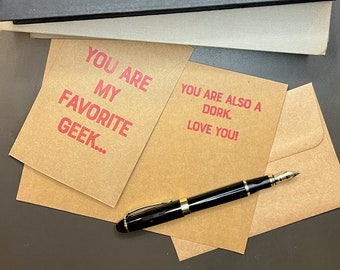 YOU ARE
MY
FAVORITE
GEEK...
YOU ARE ALSO A
DORK.
LOVE YOU!